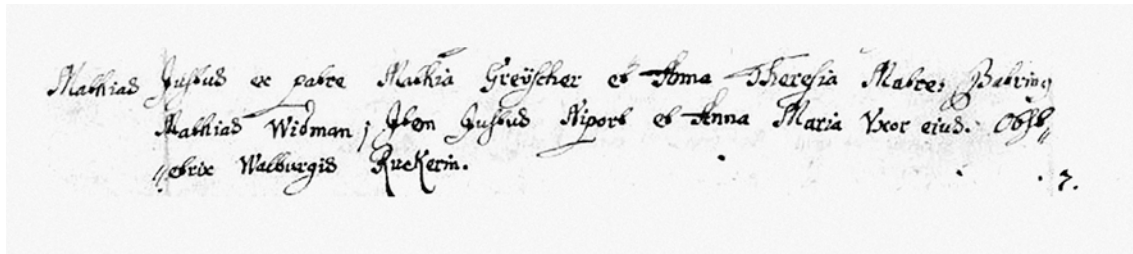 Mathias Justus ex patre Mathia Greÿscher et Anna Theresia Matre; Patrinq
Mathias Widman; Item Justus Niport et Anna Maria Vxor eius. Obst=
=etrix Walburgis Ruckerin. 7.